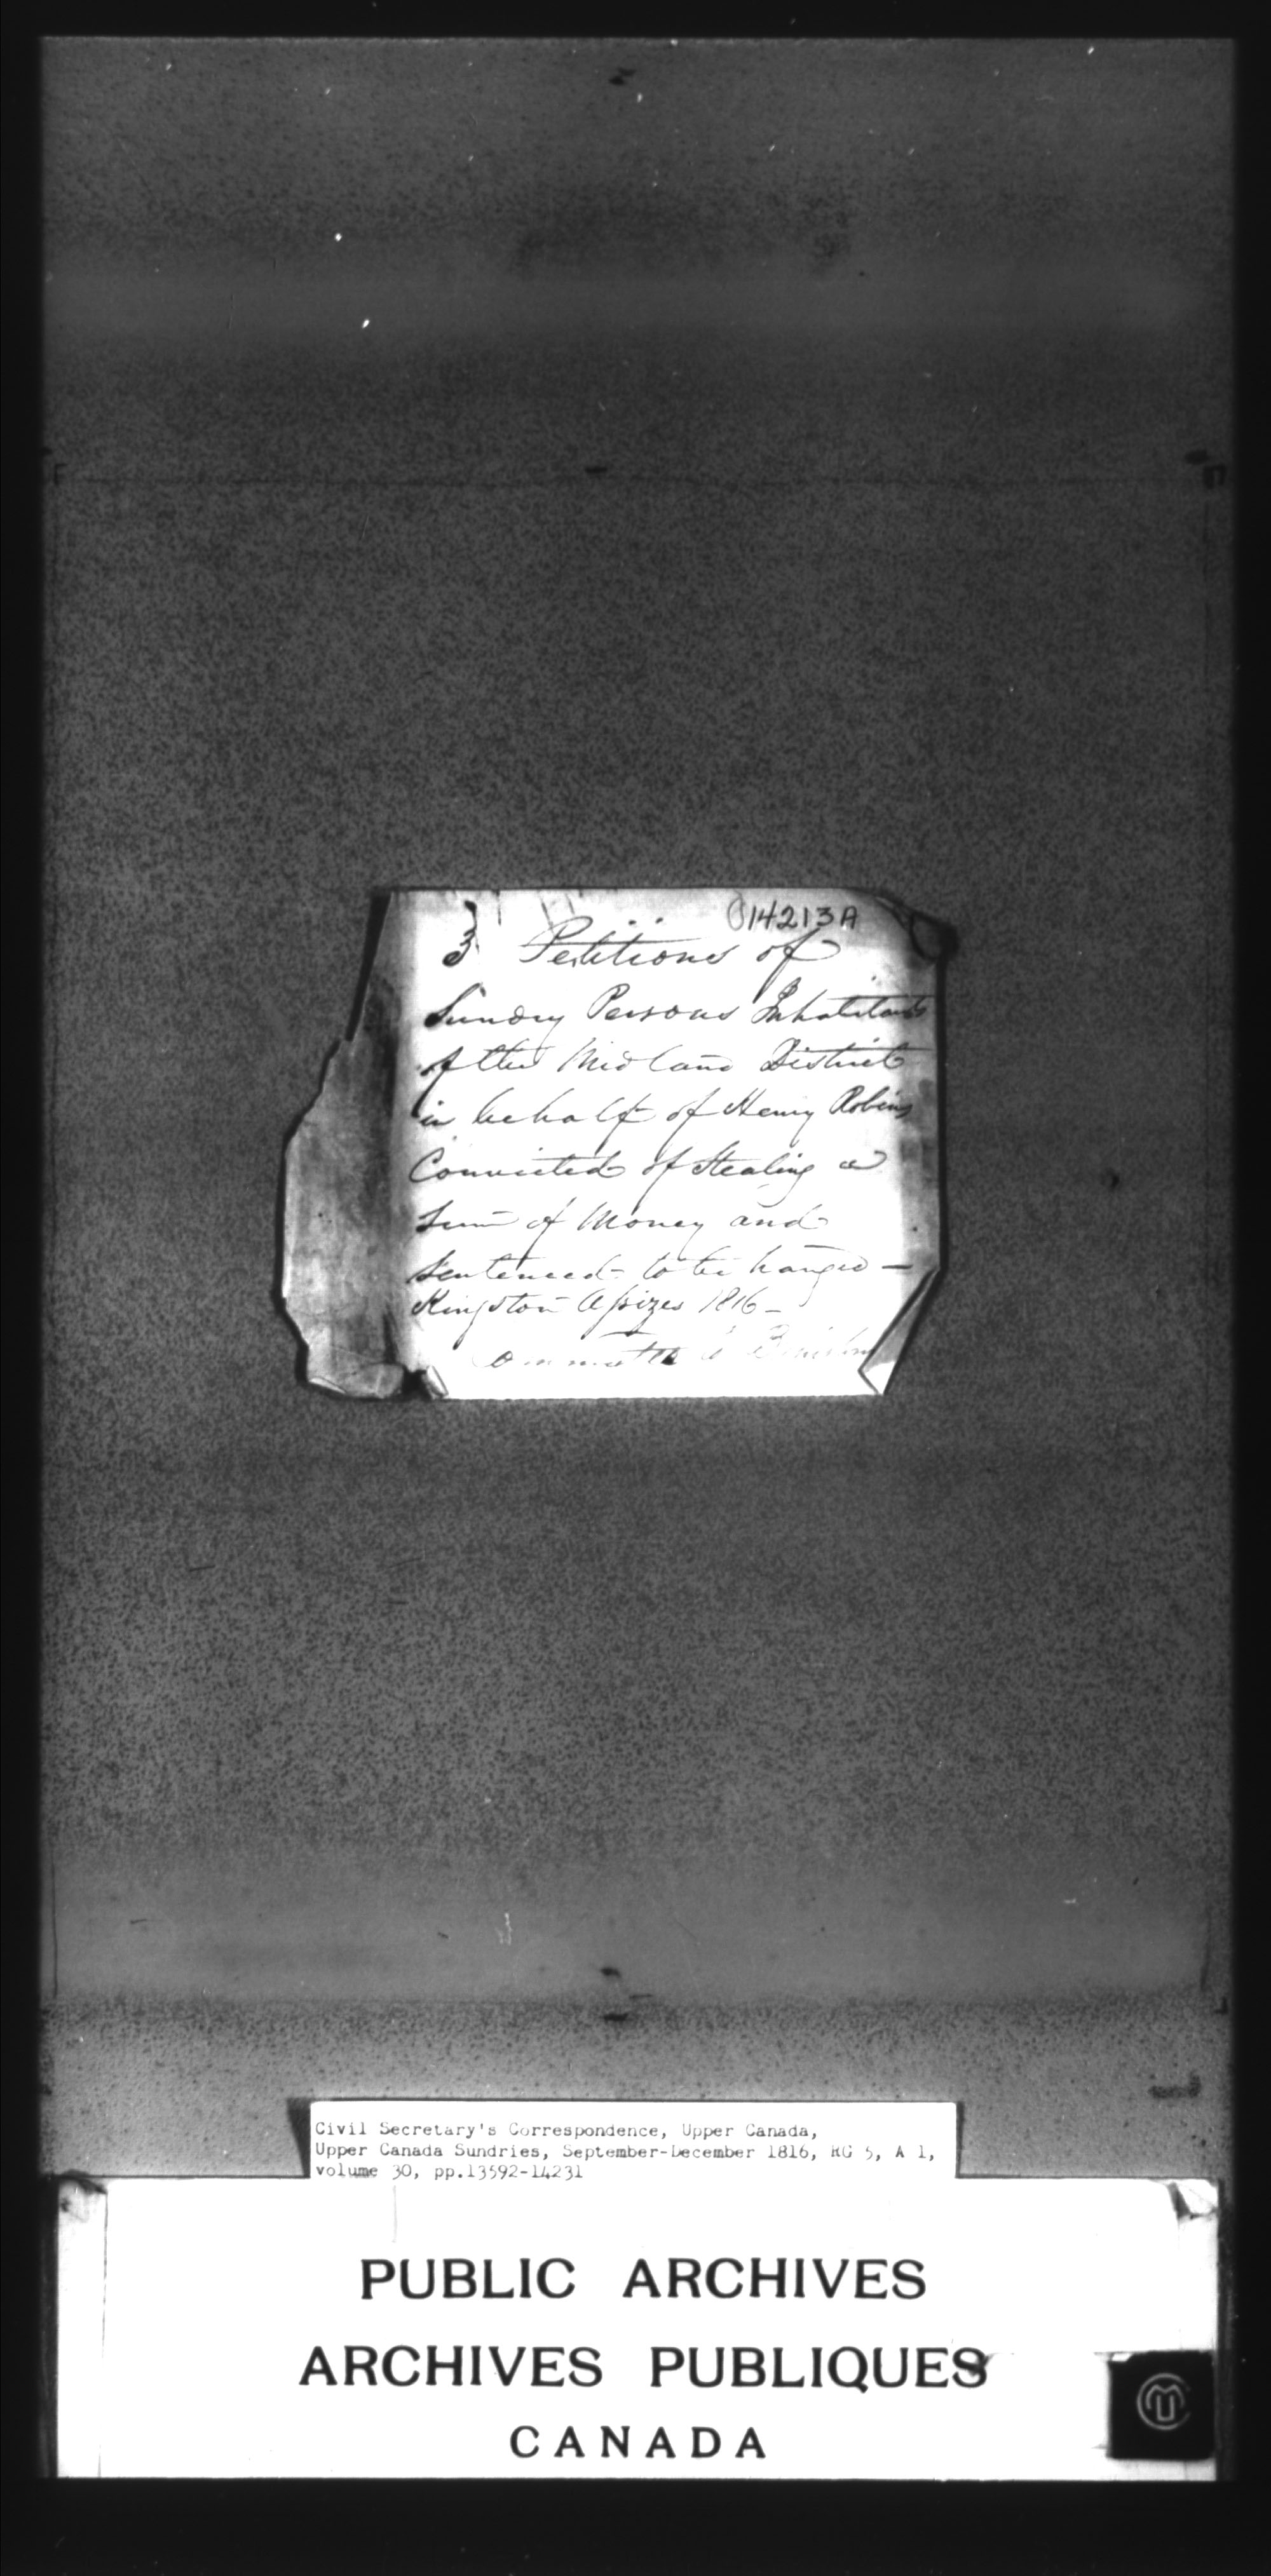 014213A
3 Petitions of
Sundry Persons Inhabitants
of the Midland District
in behalf of Henry Robins
Convicted of Stealing a
Sum of Money and
Sentenced to be hanged —
Kingston Assizes 1816 —
Civil Secretary's Correspondence, Upper Canada,
Upper Canada Sundries, September-December 1816, RG 5, A 1,
volume 30, pp.13592-14231
PUBLIC ARCHIVES
ARCHIVES PUBLIQUES
CANADA